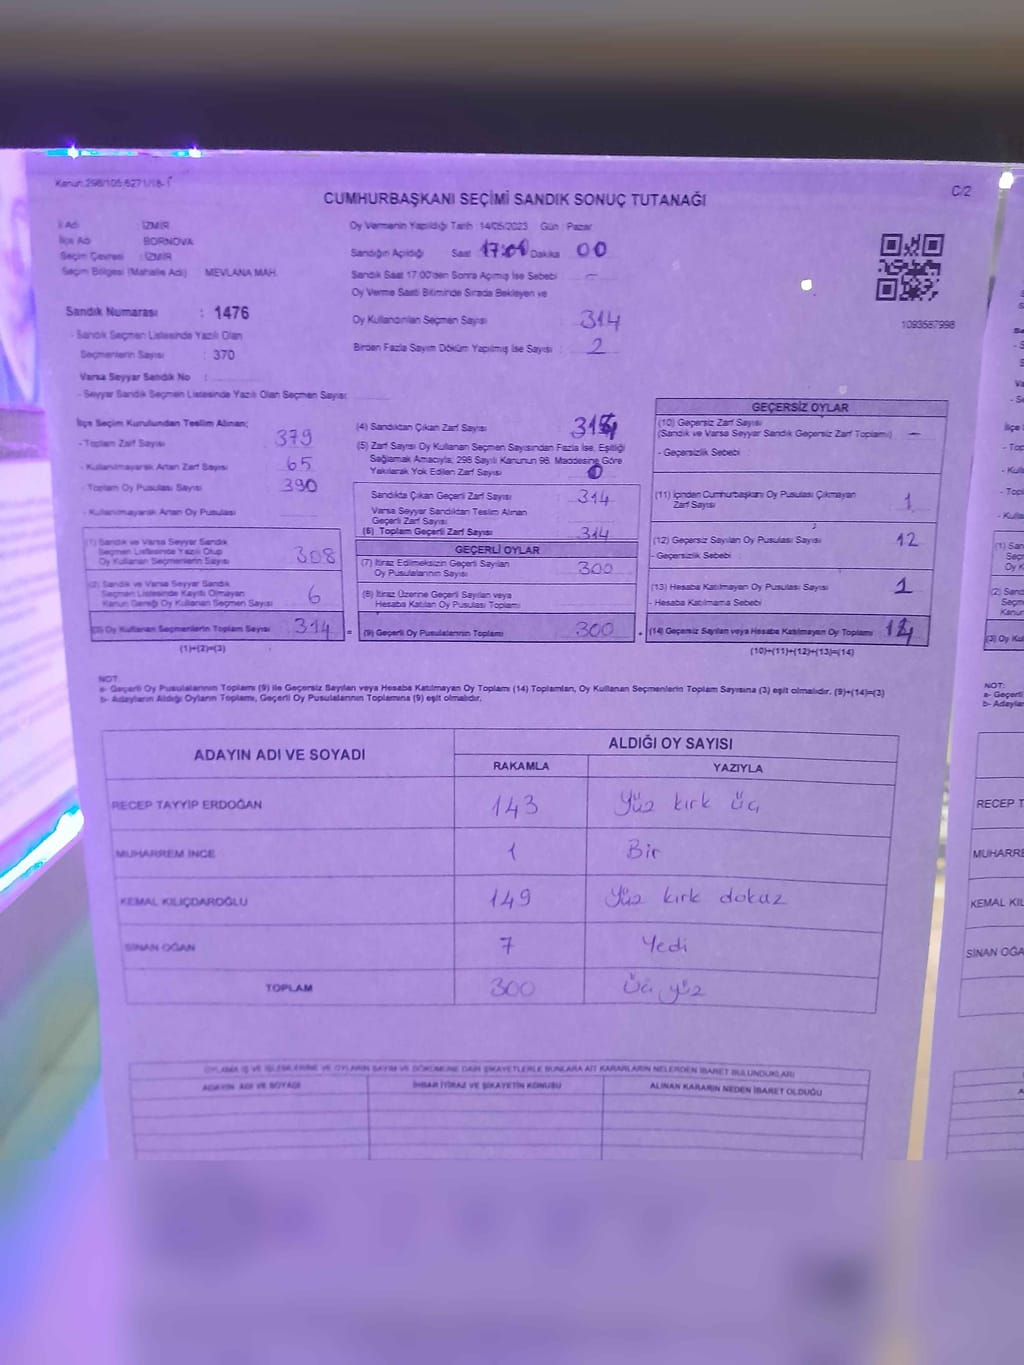 Kanun:298/105.6271/18-1
C/2
CUMHURBAŞKANI SEÇİMİ SANDIK SONUÇ TUTANAĞI
İl Adı İZMİR
İlçe Adı BORNOVA
Seçim Çevresi : İZMİR
Seçim Bölgesi (Mahalle Adı) MEVLANA MAH.
Sandık Numarası : 1476
- Sandık Seçmen Listesinde Yazılı Olan
Seçmenlerin Sayısı : 370
Varsa Seyyar Sandık No :
- Seyyar Sandık Seçmen Listesinde Yazılı Olan Seçmen Sayısı
Oy Vermenin Yapıldığı Tarih 14/05/2023 Gün : Pazar
Sandığın Açıldığı Saat 17:00 Dakika 00
Sandık Saat 17.00'den Sonra Açmış İse Sebebi –
Oy Verme Saati Bitiminde Sırada Bekleyen ve
Oy Kullandırılan Seçmen Sayısı : 314
Birden Fazla Sayım Döküm Yapılmış İse Sayısı : 2
1093587998
İlçe Seçim Kurulundan Teslim Alınan;
- Toplam Zarf Sayısı 379
- Kullanılmayarak Artan Zarf Sayısı 65
- Toplam Oy Pusulası Sayısı 390
- Kullanılmayarak Artan Oy Pusulası
(1) Sandık ve Varsa Seyyar Sandık
Seçmen Listesinde Yazılı Olup
Oy Kullanan Seçmenlerin Sayısı 308
(2) Sandık ve Varsa Seyyar Sandık
Seçmen Listesinde Kayıtlı Olmayan
Kanun Gereği Oy Kullanan Seçmen Sayısı 6
(3) Oy Kullanan Seçmenlerin Toplam Sayısı 314 =
(1)+(2)=(3)
(4) Sandıktan Çıkan Zarf Sayısı 314
(5) Zarf Sayısı Oy Kullanan Seçmen Sayısından Fazla İse, Eşitliği
Sağlamak Amacıyla; 298 Sayılı Kanunun 98. Maddesine Göre
Yakılarak Yok Edilen Zarf Sayısı 0
Sandıkta Çıkan Geçerli Zarf Sayısı : 314
Varsa Seyyar Sandıktan Teslim Alınan
Geçerli Zarf Sayısı :
(6) Toplam Geçerli Zarf Sayısı : 314
GEÇERLİ OYLAR
(7) İtiraz Edilmeksizin Geçerli Sayılan
Oy Pusulalarının Sayısı : 300
(8) İtiraz Üzerine Geçerli Sayılan veya
Hesaba Katılan Oy Pusulası Toplamı :
(9) Geçerli Oy Pusulalarının Toplamı : 300 +
GEÇERSİZ OYLAR
(10) Geçersiz Zarf Sayısı
(Sandık ve Varsa Seyyar Sandık Geçersiz Zarf Toplamı) : –
- Geçersizlik Sebebi :
(11) İçinden Cumhurbaşkanı Oy Pusulası Çıkmayan
Zarf Sayısı : 1
(12) Geçersiz Sayılan Oy Pusulası Sayısı : 12
- Geçersizlik Sebebi :
(13) Hesaba Katılmayan Oy Pusulası Sayısı : 1
- Hesaba Katılmama Sebebi :
(14) Geçersiz Sayılan veya Hesaba Katılmayan Oy Toplamı : 14
(10)+(11)+(12)+(13)=(14)
NOT:
a- Geçerli Oy Pusulalarının Toplamı (9) ile Geçersiz Sayılan veya Hesaba Katılmayan Oy Toplamı (14) Toplamları, Oy Kullanan Seçmenlerin Toplam Sayısına (3) eşit olmalıdır. (9)+(14)=(3)
b- Adayların Aldığı Oyların Toplamı, Geçerli Oy Pusulalarının Toplamına (9) eşit olmalıdır.
ADAYIN ADI VE SOYADI ALDIĞI OY SAYISI
RAKAMLA YAZIYLA
RECEP TAYYİP ERDOĞAN 143 Yüz kırk üç
MUHARREM İNCE 1 Bir
KEMAL KILIÇDAROĞLU 149 Yüz kırk dokuz
SİNAN OĞAN 7 Yedi
TOPLAM 300 Üç yüz
OYLAMA İŞ VE İŞLEMLERİNE VE OYLARIN SAYIM VE DÖKÜMÜNE DAİR ŞİKAYETLERLE BUNLARA AİT KARARLARIN NELERDEN İBARET BULUNDUKLARI
ADAYIN ADI VE SOYADI İHBAR İTİRAZ VE ŞİKAYETİN KONUSU ALINAN KARARIN NEDEN İBARET OLDUĞU
NOT:
a- Geçerli
b- Adaylar
RECEP T
MUHARRE
KEMAL KIL
SİNAN OĞA